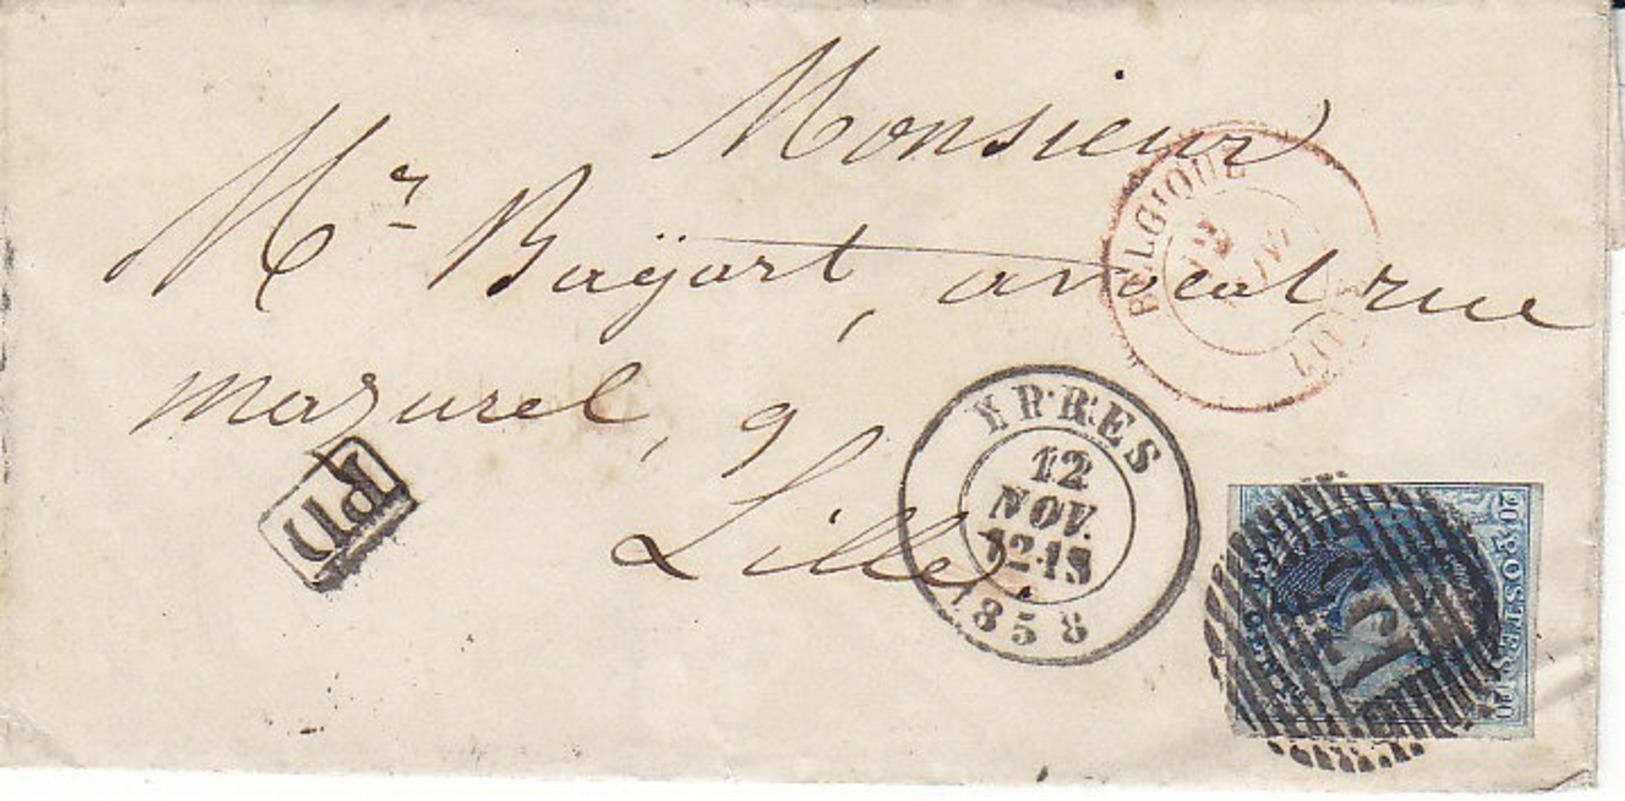 Monsieur
Mr Bayart, avocat, rue
mazurel, 9
Lille
PD
BELGIQUE
YPRES
12
NOV.
12-1S
1858
POSTES
20
20